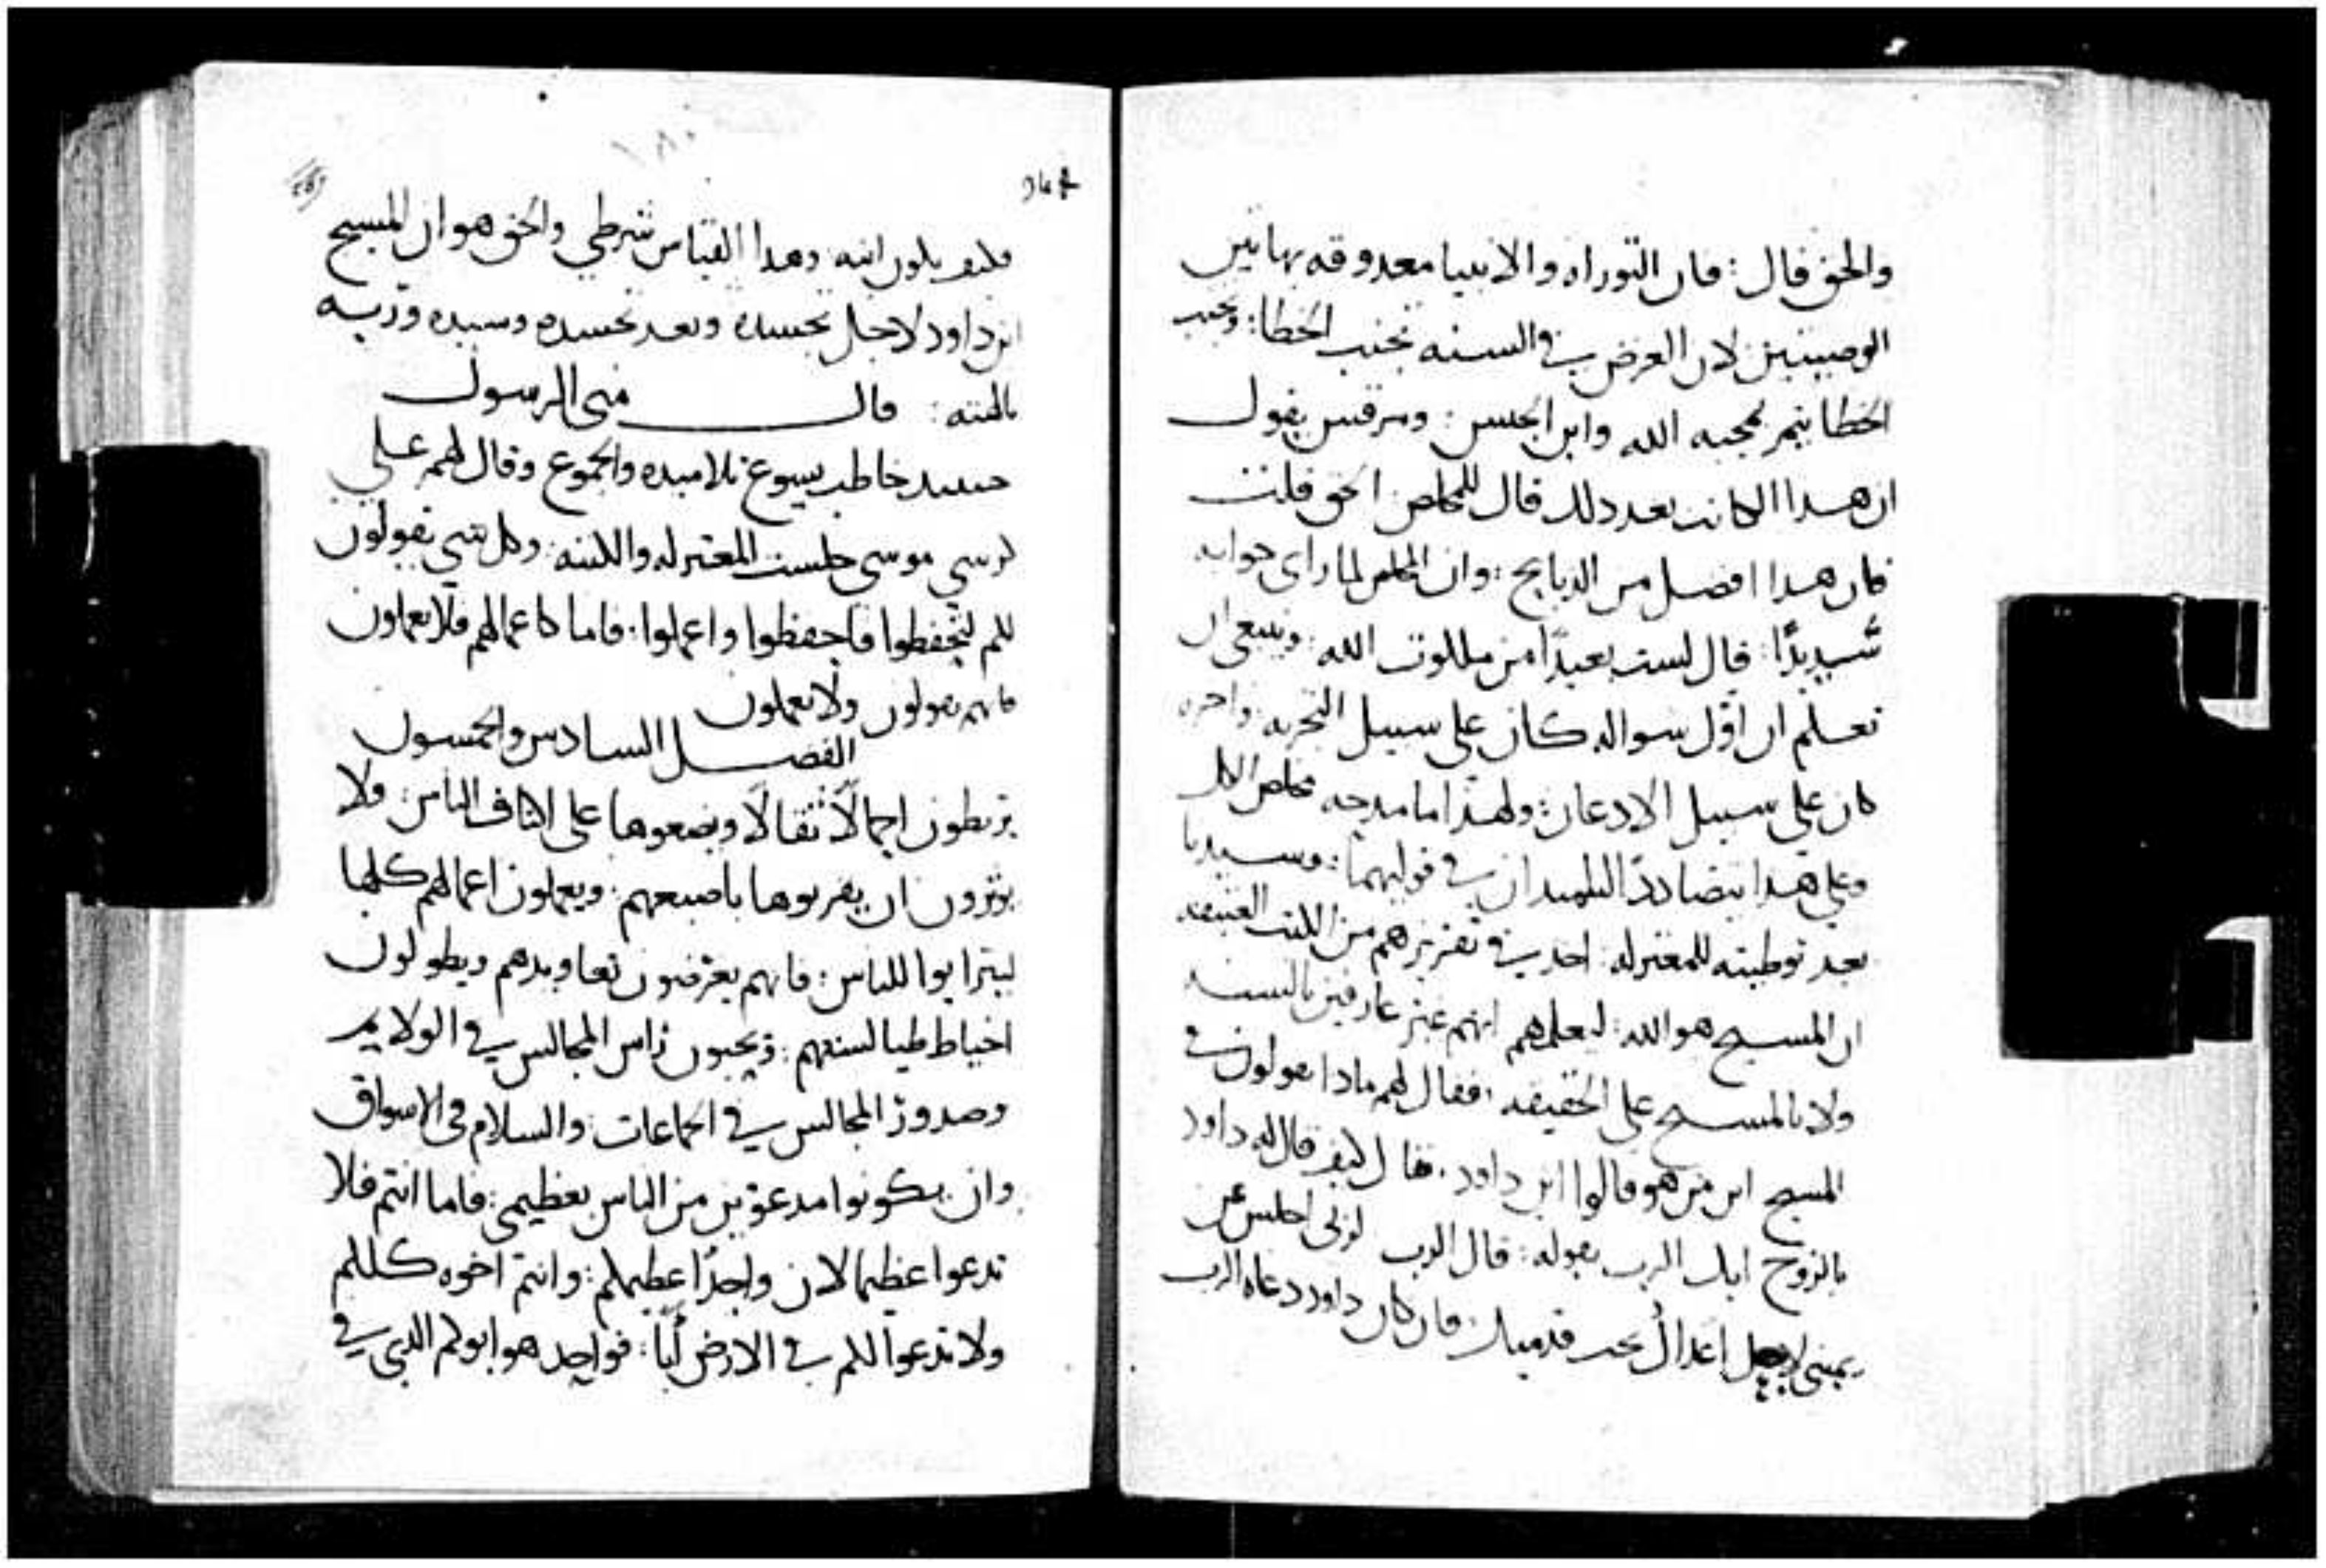 والحق قال : فان التوراه والانبيا معدوقه بهاتين
الوصيتين لان الغرض في السنه تجنب الخطا : وتجنب
الخطا يتم بمحبه الله وابن الجنس : ومرقس يقول
ان هدا الكاتب بعد دلك قال للمخلص الحق قلت
فان هدا افضل من الدبايح : وان المخلص لما راى جوابه
شديدًا : قال لست بعيدًا من ملكوت الله : وينبغي ان
تعلم ان اوّل سواله كان على سبيل التجربه واخره
كان على سبيل الادعان : ولهدا ما مدحه مخلص الكل
وعلى هدا يتضادد التلميدان في قوليهما : وسيدنا
بعد توطيته للمعتزله : اخد في تقريرهم من الكتب العتيقه
ان المسيح هو الله : ليعلمهم انهم غير عارفين بالسنه
ولا بالمسيح على الحقيقه : فقال لهم مادا تقولون في
المسيح ابن من هو قالوا ابن داود . فقال كيف قال له داود
بالروح ابك الرب بقوله : قال الرب لربى اجلس عن
يميني لاجعل اعداك تحت قدميك : فان كان داود دعاه الرب
٩٤٢
١٨٠
فكيف يكون ابنه وهدا القياس شرطي والحق هو ان المسيح
ابن داود لاجل تجسده وبعد تجسده وسيده وربه
قال متى الرسول
حينيد خاطب يسوع تلاميده والجموع وقال لهم على
كرسي موسى جلست المعتزله والكتبه : وكل شي يقولون
لكم لتحفظوا فاحفظوا واعملوا : فاما كاعمالهم فلا تعملون
فانهم يقولون ولا يعملون
الفصل السادس والخمسون
يربطون احمالًا ثقالًا ويضعوها على اكتاف الناس : ولا
يوثرون ان يقربوها باصبعهم : ويعملون اعمالهم كلها
ليترايوا للناس : فانهم يعرضون تعاويدهم ويطولون
اخياط طيالستهم : ويحبون راس المجالس في الولايم
وصدور المجالس في الجماعات : والسلام في الاسواق
وان يكونوا مدعوّين من الناس بعظيمي : فاما انتم فلا
تدعوا عظيما لان واحدًا عظيمكم : وانتم اخوه كلكم
ولا تدعوا لكم في الارض أبًا : فواحد هو ابوكم الدي في